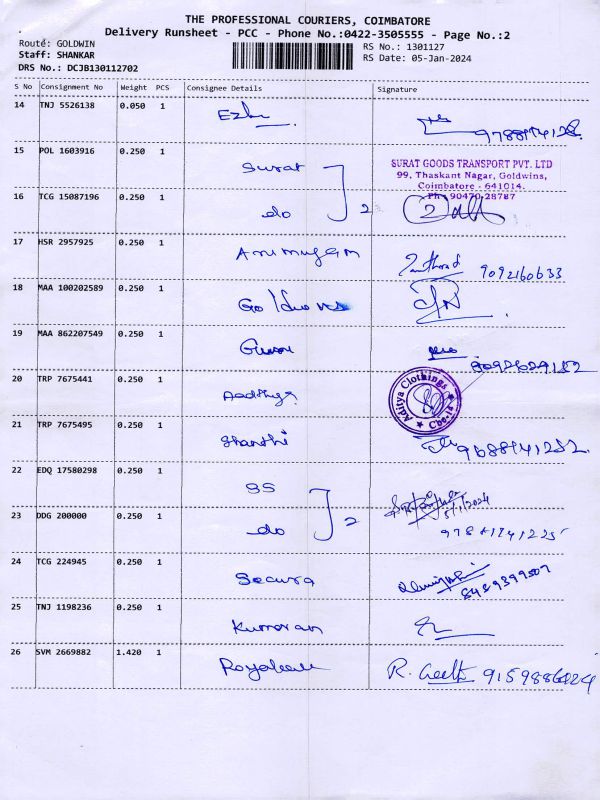 THE PROFESSIONAL COURIERS, COIMBATORE
Delivery Runsheet - PCC - Phone No.:0422-3505555 - Page No.:2
Route: GOLDWIN
RS No.: 1301127
Staff: SHANKAR
RS Date: 05-Jan-2024
DRS No.: DCJB130112702
S No Consignment No Weight PCS Consignee Details Signature
14 TNJ 5526138 0.050 1
15 POL 1603916 0.250 1 Surat
SURAT GOODS TRANSPORT PVT. LTD
99, Thaskant Nagar, Goldwins,
Coimbatore - 641014.
Ph : 90470 28787
16 TCG 15087196 0.250 1 do 2
17 HSR 2957925 0.250 1 Arumugam 9092160633
18 MAA 100202589 0.250 1 Goldwins
19 MAA 862207549 0.250 1
20 TRP 7675441 0.250 1 Aadhya
Aditya Clothings
21 TRP 7675495 0.250 1 Shanthi
22 EDQ 17580298 0.250 1 SS
5/1/2024
23 DDG 200000 0.250 1 do 2
24 TCG 224945 0.250 1 Secura 8489399509
25 TNJ 1198236 0.250 1 Kumaran
26 SVM 2669882 1.420 1 R. Geetha 9159886424